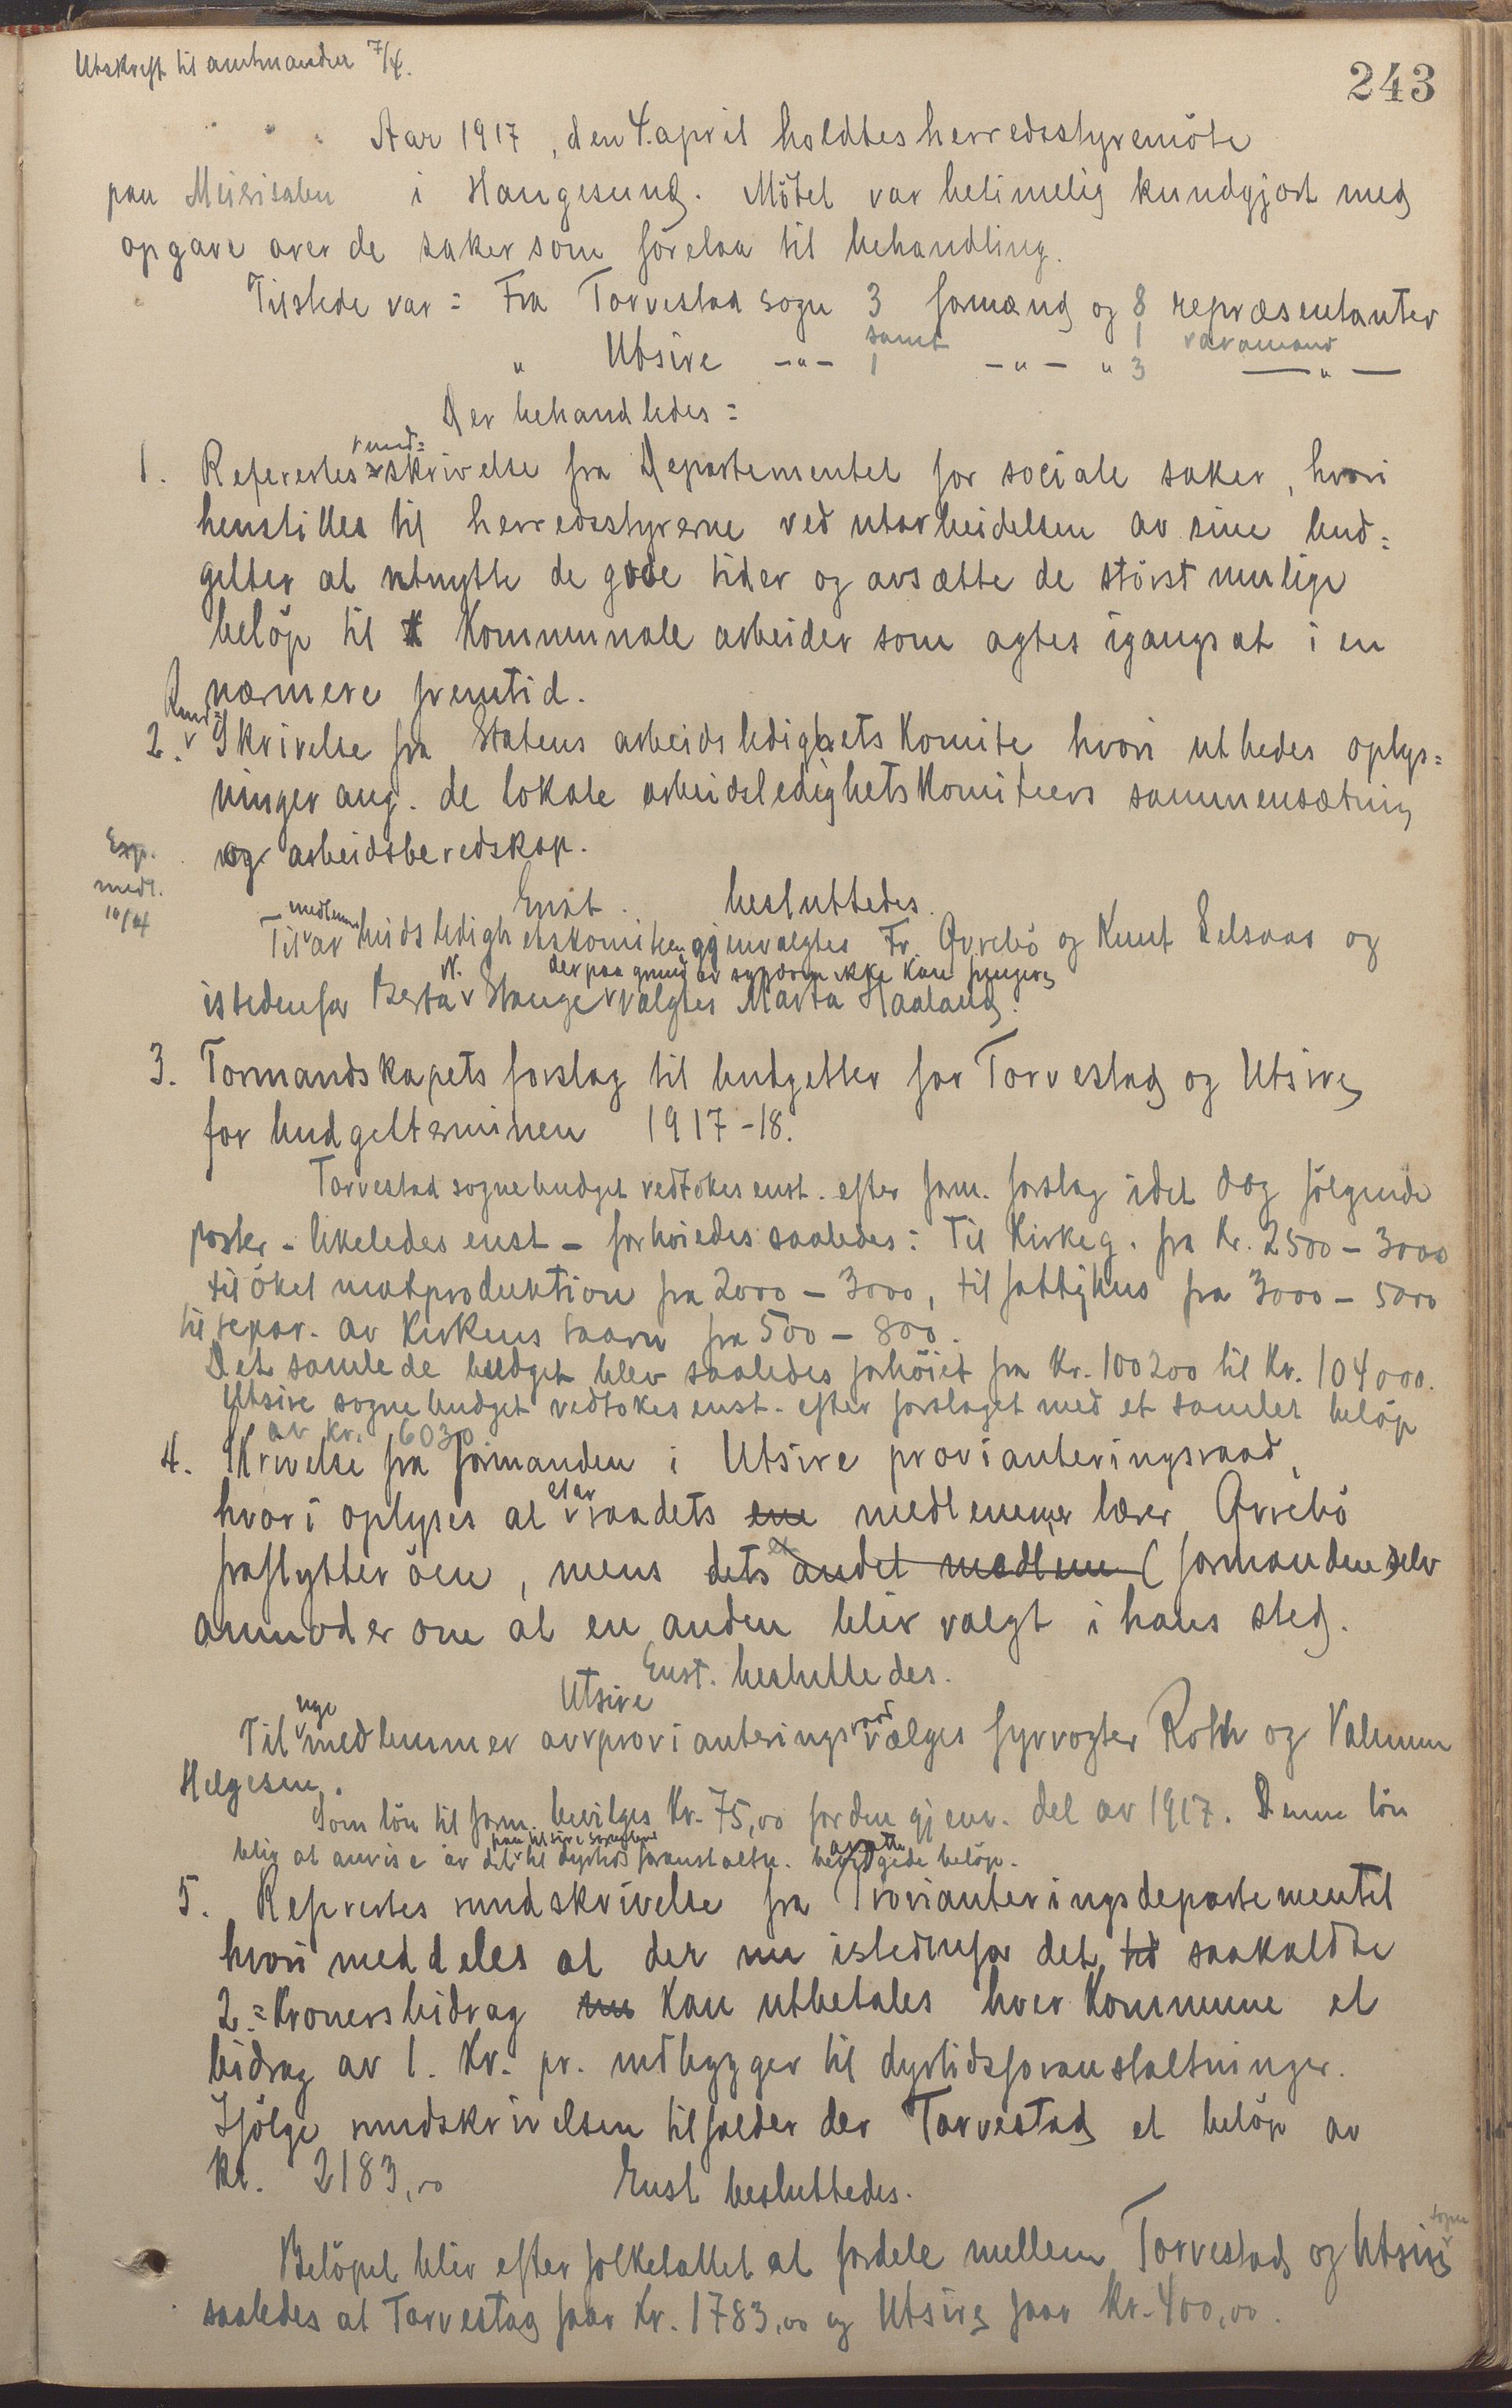 Utskrift til amtmanden 7/4.
243
Aar 1917, den 4. april holdtes herredsstyremöte
paa Meierisalen i Haugesund. Mötet var betimelig kundgjort med
opgave over de saker som forelaa til behandling.
Tilstede var: Fra Torvestad sogn 3 formænd og 8 repræsentanter
samt 1 varamand
" Utsire -"- 1 -"- " 3 -"-
Der behandledes:
1. Refertes rund=skrivelse fra Departementet for sociale saker, hvori
henstilles til herredsstyrerne ved utarbeidelsen av sine bud=
getter at utnytte de gode tider og avsætte de störst mulige
belöp til kommunale arbeider som agtes igangsat i en
nærmere fremtid.
2. Rund=Skrivelse fra Statens arbeidsledighetskomite hvori utbedes oplys=
ninger ang. de lokale arbeidsledighetskomiteers sammensætning
og arbeidsberedskap.
Exp.
medl.
10/4
Enst. besluttedes.
Til medlemmer av arbeidsledighetskomiteen gjenvalgtes Fr. Qvrebö og Knut Selsaas og
istedenfor Berta N. Stange der paa grund av sygdom ikke kan fungere valgtes Marta Haaland.
3. Formandskapets forslag til budgetter for Torvestad og Utsire
for budgetterminen 1917-18.
Torvestad sognebudget vedtokes enst. efter form. forslag idet dog fölgende
poster - likeledes enst - forhöiedes saaledes: Til Kirkeg. fra Kr. 2500 - 3000
til öket matproduktion fra 2000 - 3000, til fattighus fra 3000 - 5000
til repar. av kirkens taarn fra 500 - 800.
Det samlede budget blev saaledes forhöiet fra Kr. 100200 til Kr. 104000.
Utsire sognebudget vedtokes enst. efter forslaget med et samlet belöp
av Kr. 6030
4. Skrivelse fra formanden i Utsire provianteringsraad,
hvori oplyses at et av raadets ene medlemmer lærer Qvrebö
fraflytter öen, mens dets et andet medlem (formanden) selv
anmoder om at en anden blir valgt i hans sted.
Enst. besluttedes.
Til nye medlemmer av Utsire provianteringsraad vælges fyrvogter Roth og Valemon
Helgesen.
Som lön til form. bevilges Kr. 75,00 for den gjenv. del av 1917. Denne lön
blir at anvise av det paa Utsire til dyrtids foranstaltn. avsatte bevilgede belöp.
5. Refertes rundskrivelse fra Provianteringsdepartementet
hvori meddeles at der nu istedenfor det til saakaldte
2=kronersbidrag nu kan utbetales hver kommune et
bidrag av 1. Kr. pr. indbygger til dyrtidsforanstaltninger.
Ifölge rundskrivelsen tilfalder der Torvestad et belöp av
Kr. 2183,00 Enst besluttedes.
Belöpet blir efter folketallet at fordele mellem Torvestad og Utsire sogne
saaledes at Torvestad faar Kr. 1783,00 og Utsire faar Kr. 400,00.